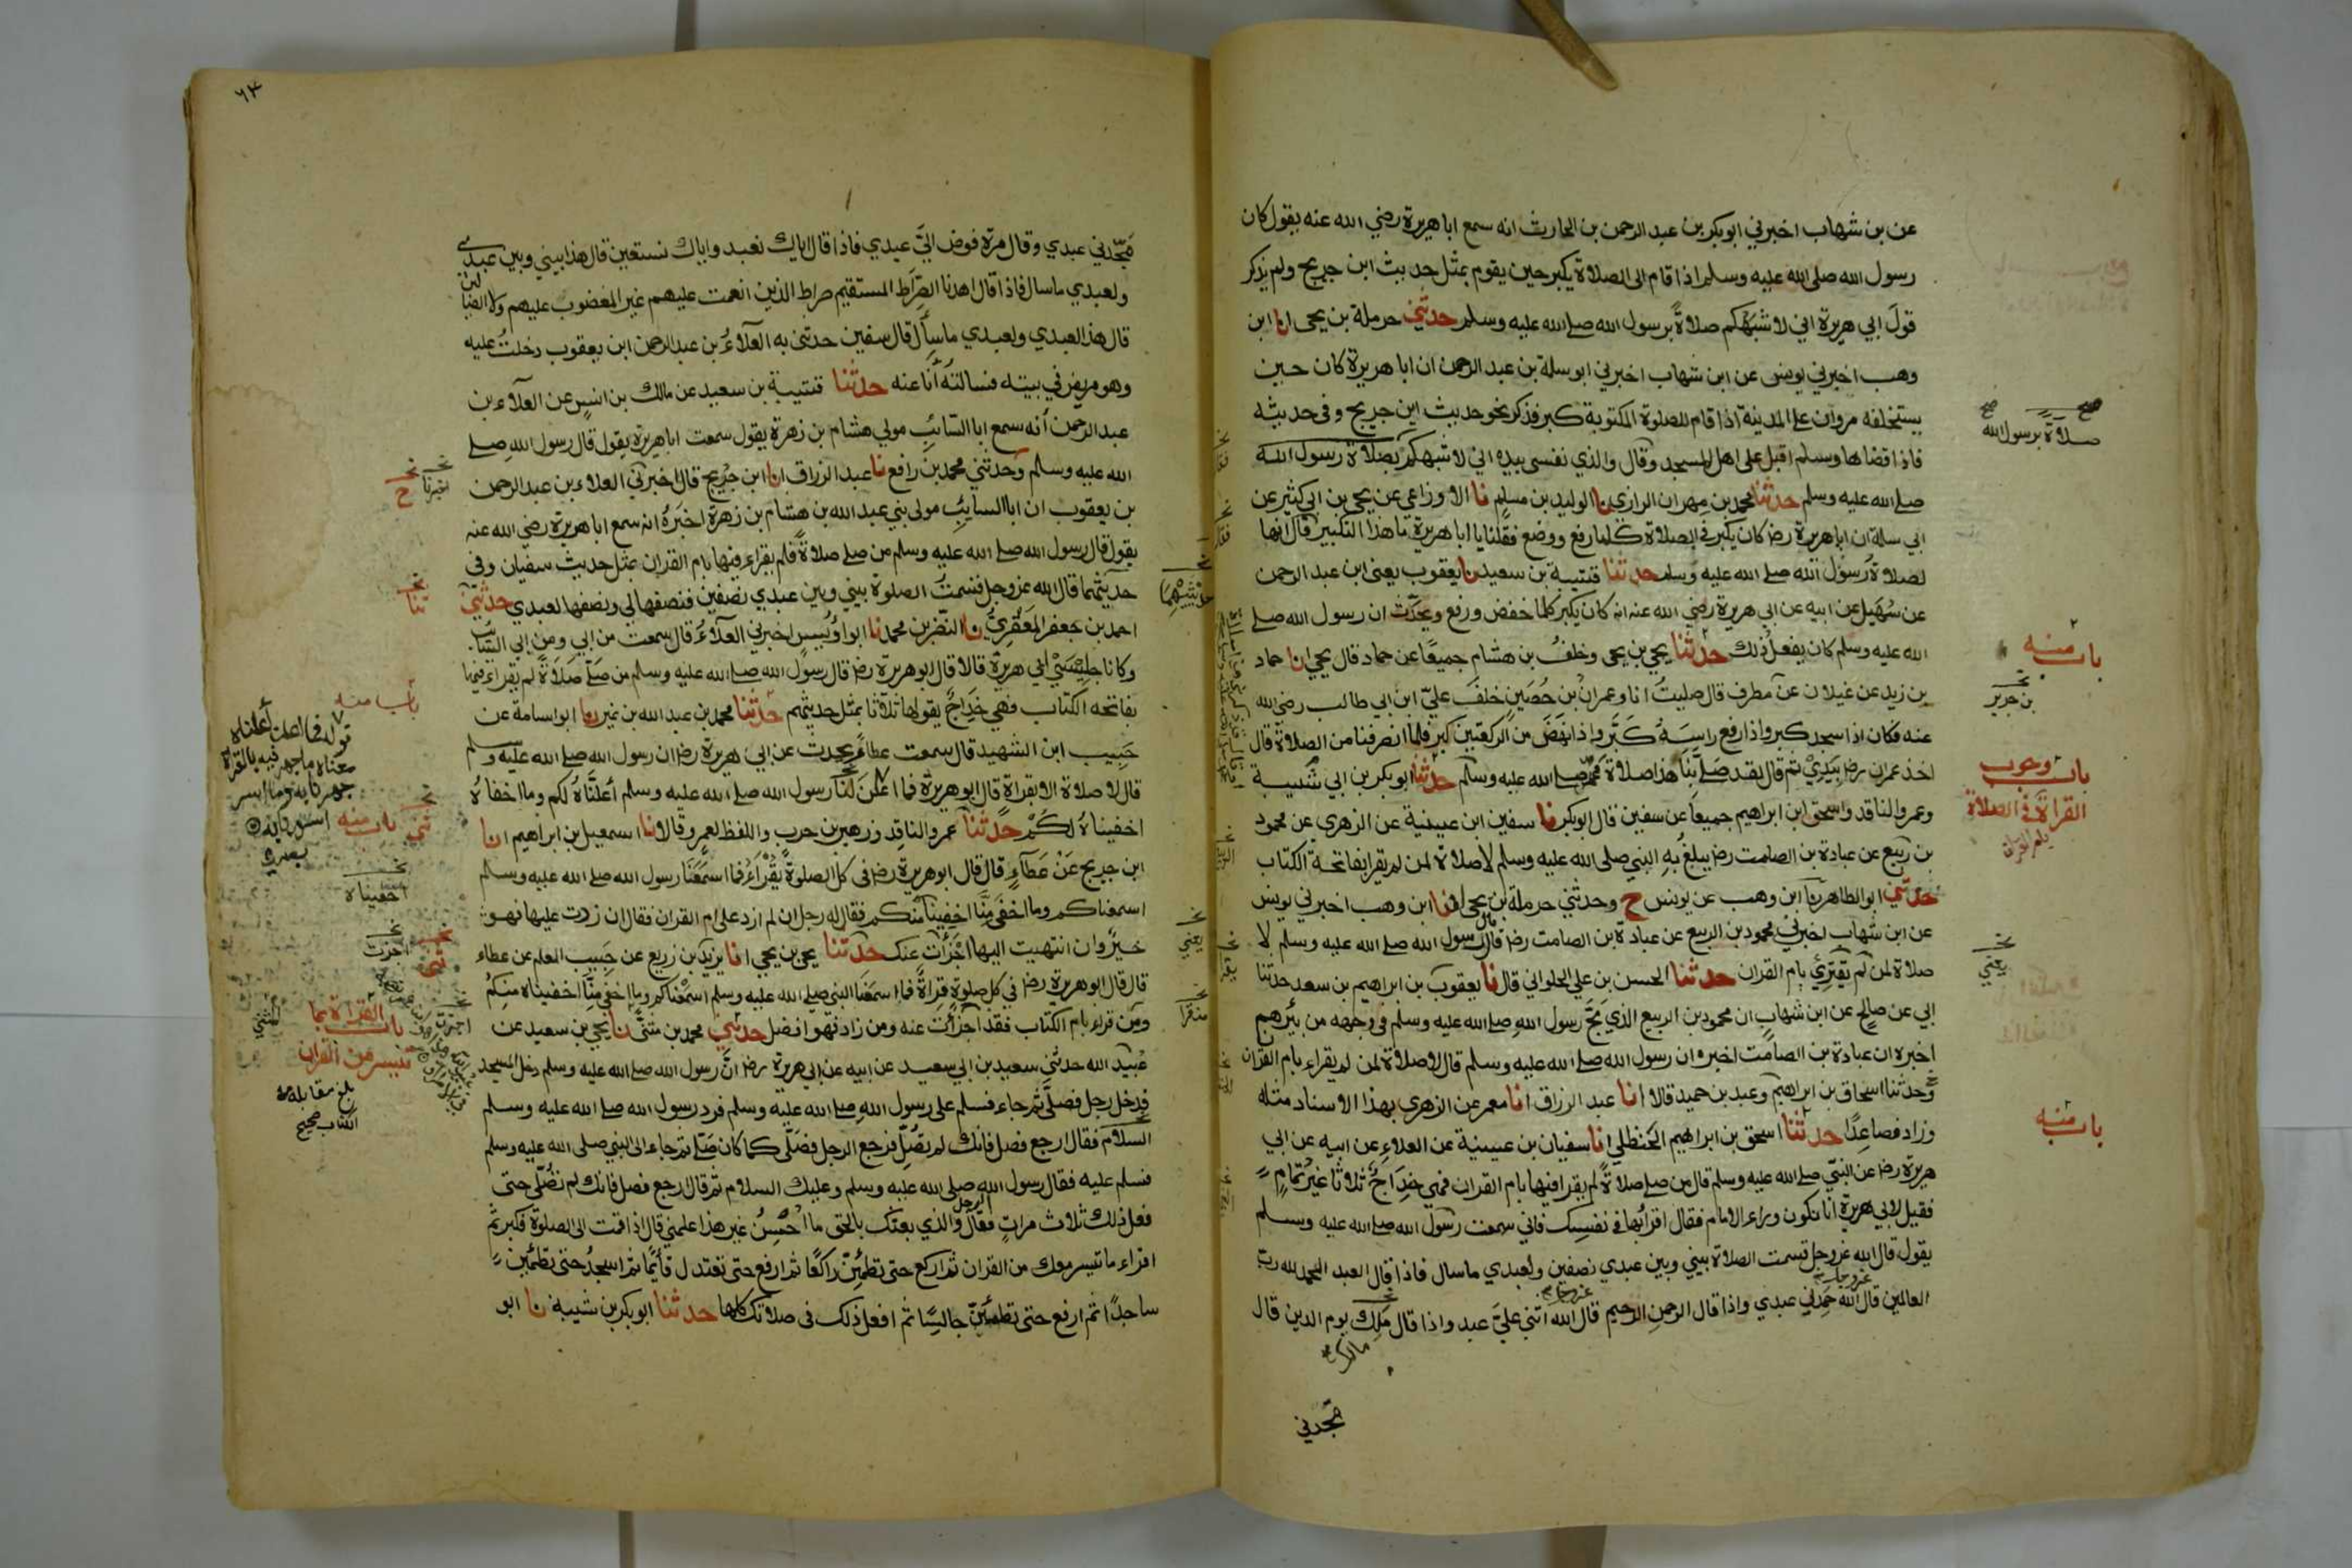 عن بن شهاب اخبرني ابوبكر بن عبد الرحمن بن الحارث انه سمع ابا هريرة رضي الله عنه يقول كان
رسول الله صلى الله عليه وسلم اذا قام الى الصلاة يكبر حين يقوم بمثل حديث ابن جريج ولم يذكر
قول ابي هريرة اني لاشبهكم صلاةً برسول الله صلى الله عليه وسلم حدثني حرملة بن يحيى انا ابن
وهب اخبرني يونس عن ابن شهاب اخبرني ابو سلمة بن عبد الرحمن ان ابا هريرة كان حين
يستخلفه مروان على المدينة اذا قام للصلوة المكتوبة كبر فذكر نحو حديث ابن جريج وفى حديثه
فاذا قضاها وسلم اقبل على اهل المسجد وقال والذي نفسى بيده اني لاشبهكم بصلاة رسول الله
صلى الله عليه وسلم حدثنا محمد بن مهران الرازي نا الوليد بن مسلم نا الاوزاعي عن يحيى بن ابي كثير عن
ابي سلمة ان ابا هريرة رضـ كان يكبر في الصلاة كلما رفع ووضع فقلنا يا ابا هريرة ما هذا التكبير قال انها
لصلاة رسول الله صلى الله عليه وسلم حدثنا قتيبة بن سعيد نا يعقوب يعنى ابن عبد الرحمن
عن سُهَيل عن ابيه عن ابي هريرة رضي الله عنه انه كان يكبر كلما خفض ورفع ويحدّث ان رسول الله صلى
الله عليه وسلم كان يفعل ذلك حدثنا يحيى بن يحيى وخلف بن هشام جميعًا عن حماد قال يحيى انا حماد
بن زيد عن غيلان عن مطرف قال صليتُ انا وعمران بن حُصَين خلفَ عليّ ابن ابي طالب رضي الله
عنه فكان اذا سجد كبر واذا رفع راسه كَبَّر واذا نهض من الركعتين كبر فلما انصرفنا من الصلاة قال
اخذ عمران رضـ بيدِيْ ثم قال لقد صَلّى بِنَا هذا صلاة محمّد صلى الله عليه وسلم حدثنا ابو بكر بن ابي شيبة
وعمرو الناقد واسحق ابن ابراهيم جميعًا عن سفين قال ابوبكر نا سفين ابن عيينة عن الزهري عن محمود
بن ربيع عن عبادة بن الصامت رضـ يبلغُ بهِ النبي صلى الله عليه وسلم لا صلاة لمن لم يقرا بفاتحة الكتاب
حدثني ابو الطاهر نا ابن وهب عن يونس ح وحدثني حرملة بن يحيى انا ابن وهب اخبرني يونس
عن ابن شهاب اخبرني محمود بن الربيع عن عبادة بن الصامت رضـ قال قال رسول الله صلى الله عليه وسلم لا
صلاة لمن لم يقترئ بام القران حدثنا الحسن بن علي الحلواني قال نا يعقوب بن ابراهيم بن سعد حدثنا
ابي عن صالح عن ابن شهاب ان محمود بن الربيع الذي مَجَّ رسول الله صلى الله عليه وسلم فى وجهه من بئرهم
اخبره ان عبادة بن الصامت اخبره ان رسول الله صلى الله عليه وسلم قال لا صلاة لمن لم يقراء بام القران
وحدثنا اسحاق بن ابراهيم وعبد بن حميد قالا انا عبد الرزاق انا معمر عن الزهري بهذا الاسناد مثله
وزاد فصاعِدًا حدثنا اسحق بن ابراهيم الحنظلي انا سفيان بن عيينة عن العلاء عن ابيه عن ابي
هريرة رضـ عن النبي صلى الله عليه وسلم قال من صلى صلاةً لم يقرا فيها بام القران فهي خِدَاجٌ ثلاثا غيرُ تمامٍ
فقيل لابي هريرة انا نكون وراء الامام فقال اقرا بها فى نفسِك فاني سمعت رسول الله صلى الله عليه وسلم
يقول قال الله عز وجل قسمت الصلاة بيني وبين عبدي نصفين ولعبدي ما سال فاذا قال العبد الحمد لله رب
العالمين قال الله حَمِدَني عبدي واذا قال الرحمن الرحيم قال الله اثنى عليّ عبد واذا قال مَلِك يوم الدين قال
مالك
مجّدني
صح صح
صلاةً برسول الله
باب منه
بن جرير
باب وجوب
القراءة فى الصلاة
يعني
باب منه
٦٣
مجّدني عبدي وقال مرة فوض اليَّ عبدي فاذا قال اياك نعبد واياك نستعين قال هذا بيني وبين عبدى
ولعبدي ما سال فاذا قال اهدنا الصراط المستقيم صراط الذين انعمت عليهم غير المغضوب عليهم ولا الضالين
قال هذا لعبدي ولعبدي ما سأل قال سفين حدثنى به العلاءُ بن عبد الرحمن ابن يعقوب دخلتُ عليه
وهو مريض في بيته فسالتُه أنا عنه حدثنا قتيبة بن سعيد عن مالك بن انسٍ عن العلاء بن
عبد الرحمن أنه سمع ابا السّائِبِ مولي هشام بن زهرة يقول سمعت ابا هريرة يقول قال رسول الله صلى
الله عليه وسلم وحدثني محمد بن رافع نا عبد الرزاق انا ابن جُريج قال اخبرني العلاء بن عبد الرحمن
بن يعقوب ان ابا السايب مولى بني عبد الله بن هشام بن زهرة اخبَرهُ انه سمع ابا هريرة رضي الله عنه
يقول قال رسول الله صلى الله عليه وسلم من صلى صلاةً فلم يقراء فيها بام القران بمثل حديث سفيان وفى
حديثهما قال الله عز وجل قسمتُ الصلوة بيني وبين عبدي نصفين فنصفها لي ونصفها لعبدي حدثني
احمد بن جعفر المَعْقِرِيُّ نا النضر بن محمد نا ابو اوُيس اخبرني العلاءُ قال سمعت من ابي ومن ابي السّائب
وكانا جليسَيْ ابي هريرة قالا قال ابو هريرة رضـ قال رسول الله صلى الله عليه وسلم من صلّى صلاةً لم يقراء فيها
بفاتحه الكتاب فهي خِدَاجٌ يقولها ثلاثا بمثل حديثهم حدثنا محمد بن عبد الله بن نمير نا ابو اسامة عن
حَبِيب ابن الشهيد قال سمعت عطاءً يحدث عن ابي هريرة رضـ ان رسول الله صلى الله عليه وسلم
قال لا صلاة الا بقراءة قال ابو هريرة فما اعلَنَ لَنَا رسول الله صلى الله عليه وسلم أعلَنَّاهُ لكم وما اخفاهُ
اخفيناهُ لكُمْ حدثنا عمرو الناقد وزهير بن حرب واللفظ لعمرٍو قالا نا اسمعيل بن ابراهيم انا
ابن جريج عَنْ عَطاءٍ قال قال ابو هريرة رضـ فى كل الصلوةِ يُقْرَأُ فما اسمَعَنَا رسول الله صلى الله عليه وسلم
اسمعناكم وما اخفَى مِنَّا اخفينا منكم فقال له رجل ان لم ازد على ام القران فقال ان زدت عليها فهو
خيرٌ وان انتهيت اليها اجْزَأَت عنك حدثنا يحيى بن يحيى انا يزيد بن زريع عن حَبِيب المعلم عن عطاء
قال قال ابو هريرة رضـ في كل صلوةٍ قراةٌ فما اسمعَنَا النبي صلى الله عليه وسلم اسمعْناكم وما اخفي مِنَّا اخفيناه منكُم
ومن قراء بام الكتاب فقد اجزأَتْ عنه ومن زاد فهو افضل حدثني محمد بن مثنىَّ نا يحيى بن سعيد عن
عُبيد الله حدثني سعيد بن ابي سعيد عن ابيه عن ابي هريرة رضـ انَّ رسول الله صلى الله عليه وسلم دخل المسجد
فدخل رجل فصلَّى ثم جاء فسلم على رسول الله صلى الله عليه وسلم فرد رسول الله صلى الله عليه وسلم
السلام فقال ارجع فصل فانك لم تصَلّ فرجع الرجل فصَلّى كما كان صَلّى ثم جاء الى النبي صلى الله عليه وسلم
فسلم عليه فقال رسول الله صلى الله عليه وسلم وعليك السلام ثم قال ارجع فصل فانك لم تُصَلّى حتى
فعل ذلك ثلاث مراتٍ فقال الرجل والذي بعثك بالحق ما اُحْسِنُ غير هذا علمني قال اذا قمت الى الصلوة فكبر ثم
اقراء ما تيسر معك من القران ثم اركع حتى تطمئِنّ راكعًا ثم ارفع حتى تعتدل قائِمًا ثم اسجدْ حتى تطمئِنّ
ساجدًا ثم ارفع حتى تطمئِنَّ جالسًا ثم افعل ذلك فى صلاتك كلها حدثنا ابو بكر بن شيبة نا ابو
اخبرنا ح
باب منه
قوله فما اعلن أعلناه
معناه ما جهر فيه بالقراءة
جهرنا به وما اسر
اسررنا به
باب منه
اخفيناه
اجزت
باب القراءة بما
تيسر من القران
بلغ مقابلة
الكتاب صحيح
حديثهما
يعني